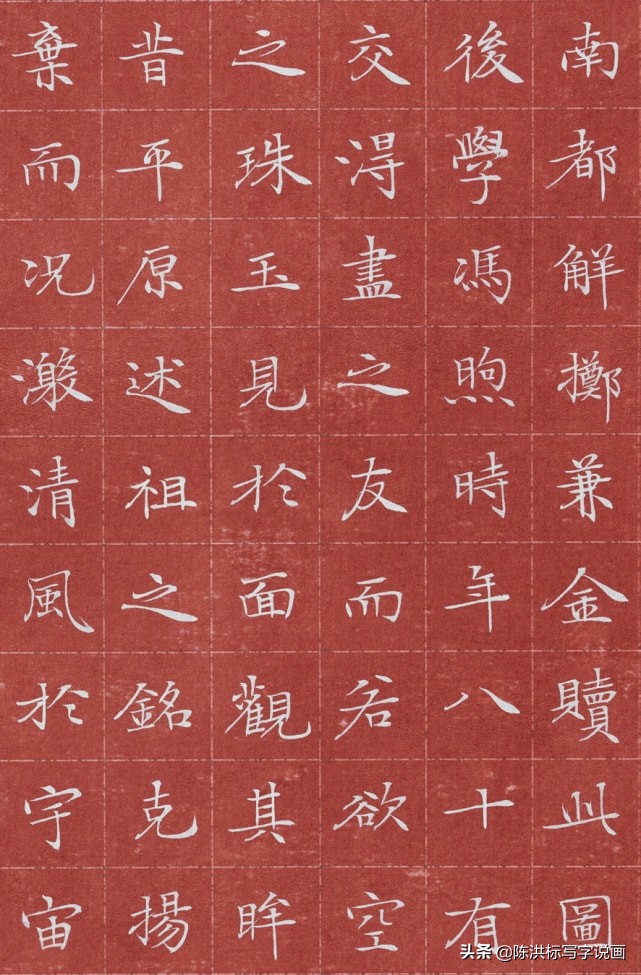 南都解擲兼金贖此圖
後學馮煦時年八十有
交淂盡之友而欲空
之珠玉見於面觀其眸
昔平原述祖之銘克揚
棄而況澂清風於宇宙
头条 @陈洪标写字说画